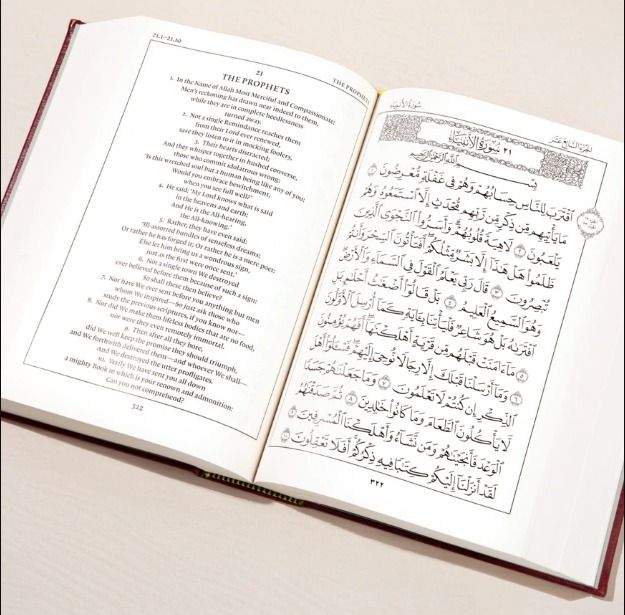 21.1–21.10
THE PROPHETS
21
THE PROPHETS
1. In the Name of Allah Most Merciful and Compassionate:
Men's reckoning has drawn near indeed to them,
while they are in complete heedlessness
turned away.
2. Not a single Remindance reaches them
from their Lord ever renewed,
save they listen to it in mocking foolery,
3. Their hearts distracted;
And they whisper together in hushed converse,
those who commit idolatrous wrong:
'Is this wretched soul but a human being like any of you;
Would you embrace bewitchment,
when you see full well?'
4. He said, 'My Lord knows what is said
in the heavens and earth;
And He is the All-hearing,
the All-knowing.'
5. Rather, they have even said:
'Ill-assorted bundles of senseless dreams;
Or rather he has forged it; Or rather he is a mere poet;
Else let him bring us a wondrous sign,
just as the first were once sent.'
6. Not a single town We destroyed
ever believed before them because of such a sign:
So shall these then believe?
7. Nor have We ever sent before you anything but men
whom We inspired—So just ask those who
study the previous scriptures, if you know not—
8. Nor did We make them lifeless bodies that ate no food,
nor were they even remotely immortal.
9. Then after all they bore,
did We well keep the promise they should triumph,
and We forthwith delivered them—and whoever We shall—
And We destroyed the utter profligates.
10. Verily We have sent you all down
a mighty Book in which is your renown and admonition:
Can you not comprehend?
322
سُورَةُ الأَنبِيَاءِ
الجزء السابع عشر
٢١ سُورَةُ الأَنبِيَاءِ
بِسْمِ اللَّهِ الرَّحْمَٰنِ الرَّحِيمِ
اقْتَرَبَ لِلنَّاسِ حِسَابُهُمْ وَهُمْ فِي غَفْلَةٍ مُّعْرِضُونَ ١
مَا يَأْتِيهِم مِّن ذِكْرٍ مِّن رَّبِّهِم مُّحْدَثٍ إِلَّا اسْتَمَعُوهُ وَهُمْ
يَلْعَبُونَ ٢ لَاهِيَةً قُلُوبُهُمْ وَأَسَرُّوا النَّجْوَى الَّذِينَ
ظَلَمُوا هَلْ هَٰذَا إِلَّا بَشَرٌ مِّثْلُكُمْ أَفَتَأْتُونَ السِّحْرَ وَأَنتُمْ
تُبْصِرُونَ ٣ قَالَ رَبِّي يَعْلَمُ الْقَوْلَ فِي السَّمَاءِ وَالْأَرْضِ
وَهُوَ السَّمِيعُ الْعَلِيمُ ٤ بَلْ قَالُوا أَضْغَاثُ أَحْلَامٍ بَلِ
افْتَرَاهُ بَلْ هُوَ شَاعِرٌ فَلْيَأْتِنَا بِآيَةٍ كَمَا أُرْسِلَ الْأَوَّلُونَ
٥ مَا آمَنَتْ قَبْلَهُم مِّن قَرْيَةٍ أَهْلَكْنَاهَا أَفَهُمْ يُؤْمِنُونَ
٦ وَمَا أَرْسَلْنَا قَبْلَكَ إِلَّا رِجَالًا نُّوحِي إِلَيْهِمْ فَسْـَٔلُوا أَهْلَ
الذِّكْرِ إِن كُنتُمْ لَا تَعْلَمُونَ ٧ وَمَا جَعَلْنَاهُمْ جَسَدًا
لَّا يَأْكُلُونَ الطَّعَامَ وَمَا كَانُوا خَالِدِينَ ٨ ثُمَّ صَدَقْنَاهُمُ
الْوَعْدَ فَأَنجَيْنَاهُمْ وَمَن نَّشَاءُ وَأَهْلَكْنَا الْمُسْرِفِينَ ٩
لَقَدْ أَنزَلْنَا إِلَيْكُمْ كِتَابًا فِيهِ ذِكْرُكُمْ أَفَلَا تَعْقِلُونَ ١٠
٣٢٢